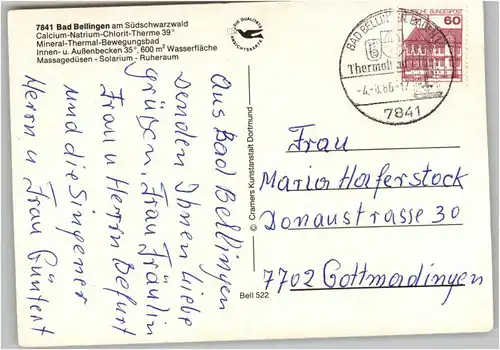 7841 Bad Bellingen am Südschwarzwald
Calcium-Natrium-Chlorit-Therme 39°
Mineral-Thermal-Bewegungsbad
Innen- u. Außenbecken 35°, 600 m² Wasserfläche
Massagedüsen - Solarium - Ruheraum
Aus Bad Bellingen
senden Ihnen liebe
grüßen, Frau Fräulin
Frau u Herrn
und die Singener
Herrn u Frau
© Cramers Kunstanstalt Dortmund
Bell 522
DEUTSCHE BUNDESPOST
60
BAD BELLINGEN
7841
Frau
Maria Haferstock
Donaustrasse 30
7702 Gottmadingen